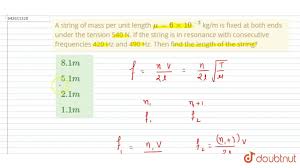 642651328
A string of mass per unit length μ = 6 × 10⁻³ kg/m is fixed at both ends
under the tension 540 N. If the string is in resonance with consecutive
frequencies 420 Hz and 490 Hz. Then find the length of the string?
8.1m
5.1m
2.1m
1.1m
f = nV/2l = n/2l √T/μ
n₁ n₁+1
f₁ f₂
f₁ = n₁V f₂ = (n₁+1)V/2l